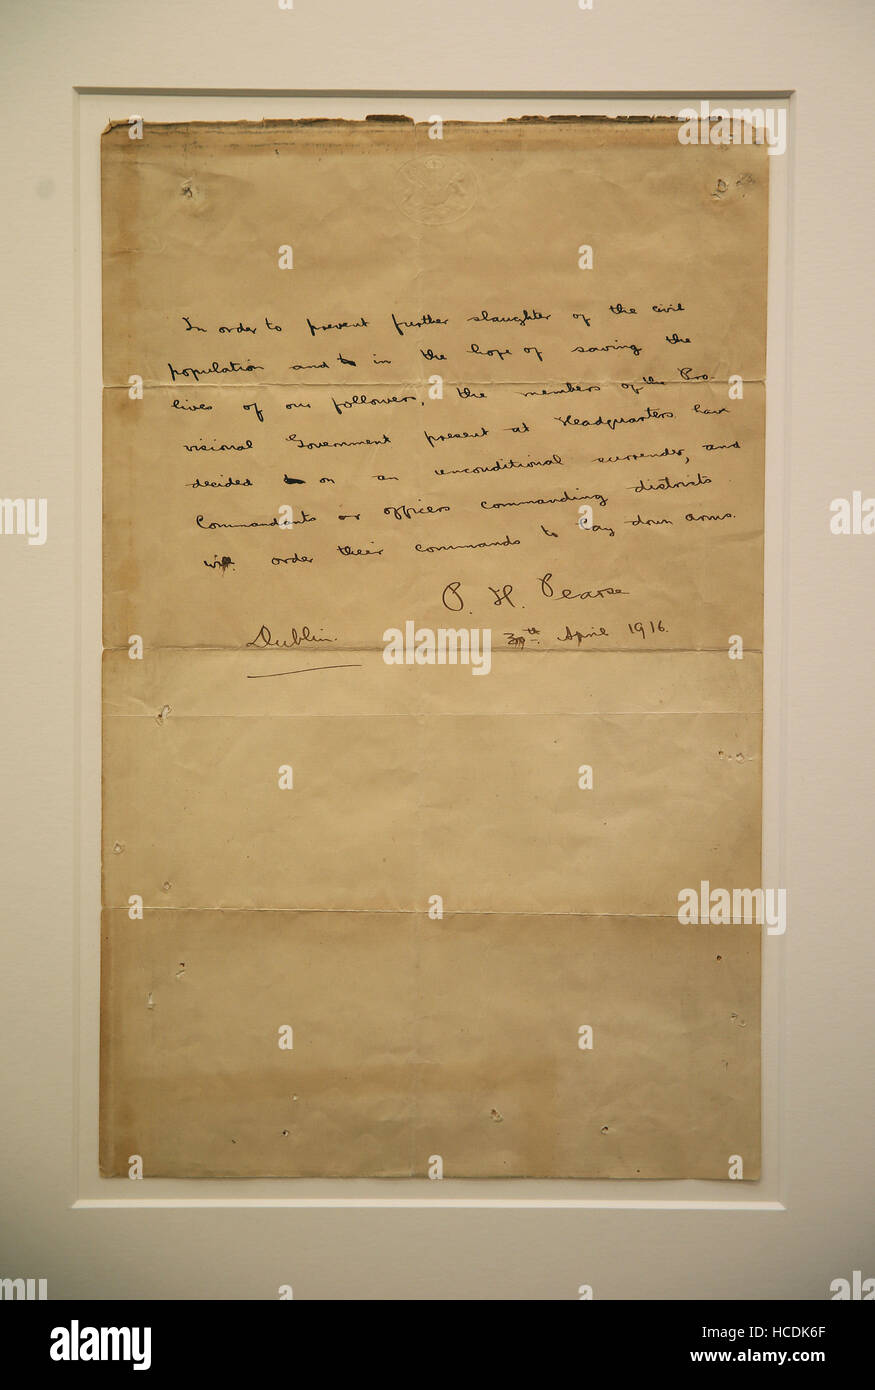 In order to prevent further slaughter of the civil
population and in the hope of saving the
lives of our followers, the members of the Pro-
visional Government present at Headquarters have
decided on an unconditional surrender, and
Commandants or officers commanding districts
will order their commands to lay down arms.
P. H. Pearse
Dublin. 30th April 1916.
a
alamy
alamy stock photo
HCDK6F
www.alamy.com